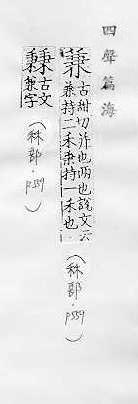 四聲篇海
兼 古甜切并也兩也說文云
兼持二禾秉持一禾也
(秝部．P559)
古文
兼字
(秝部．P559)